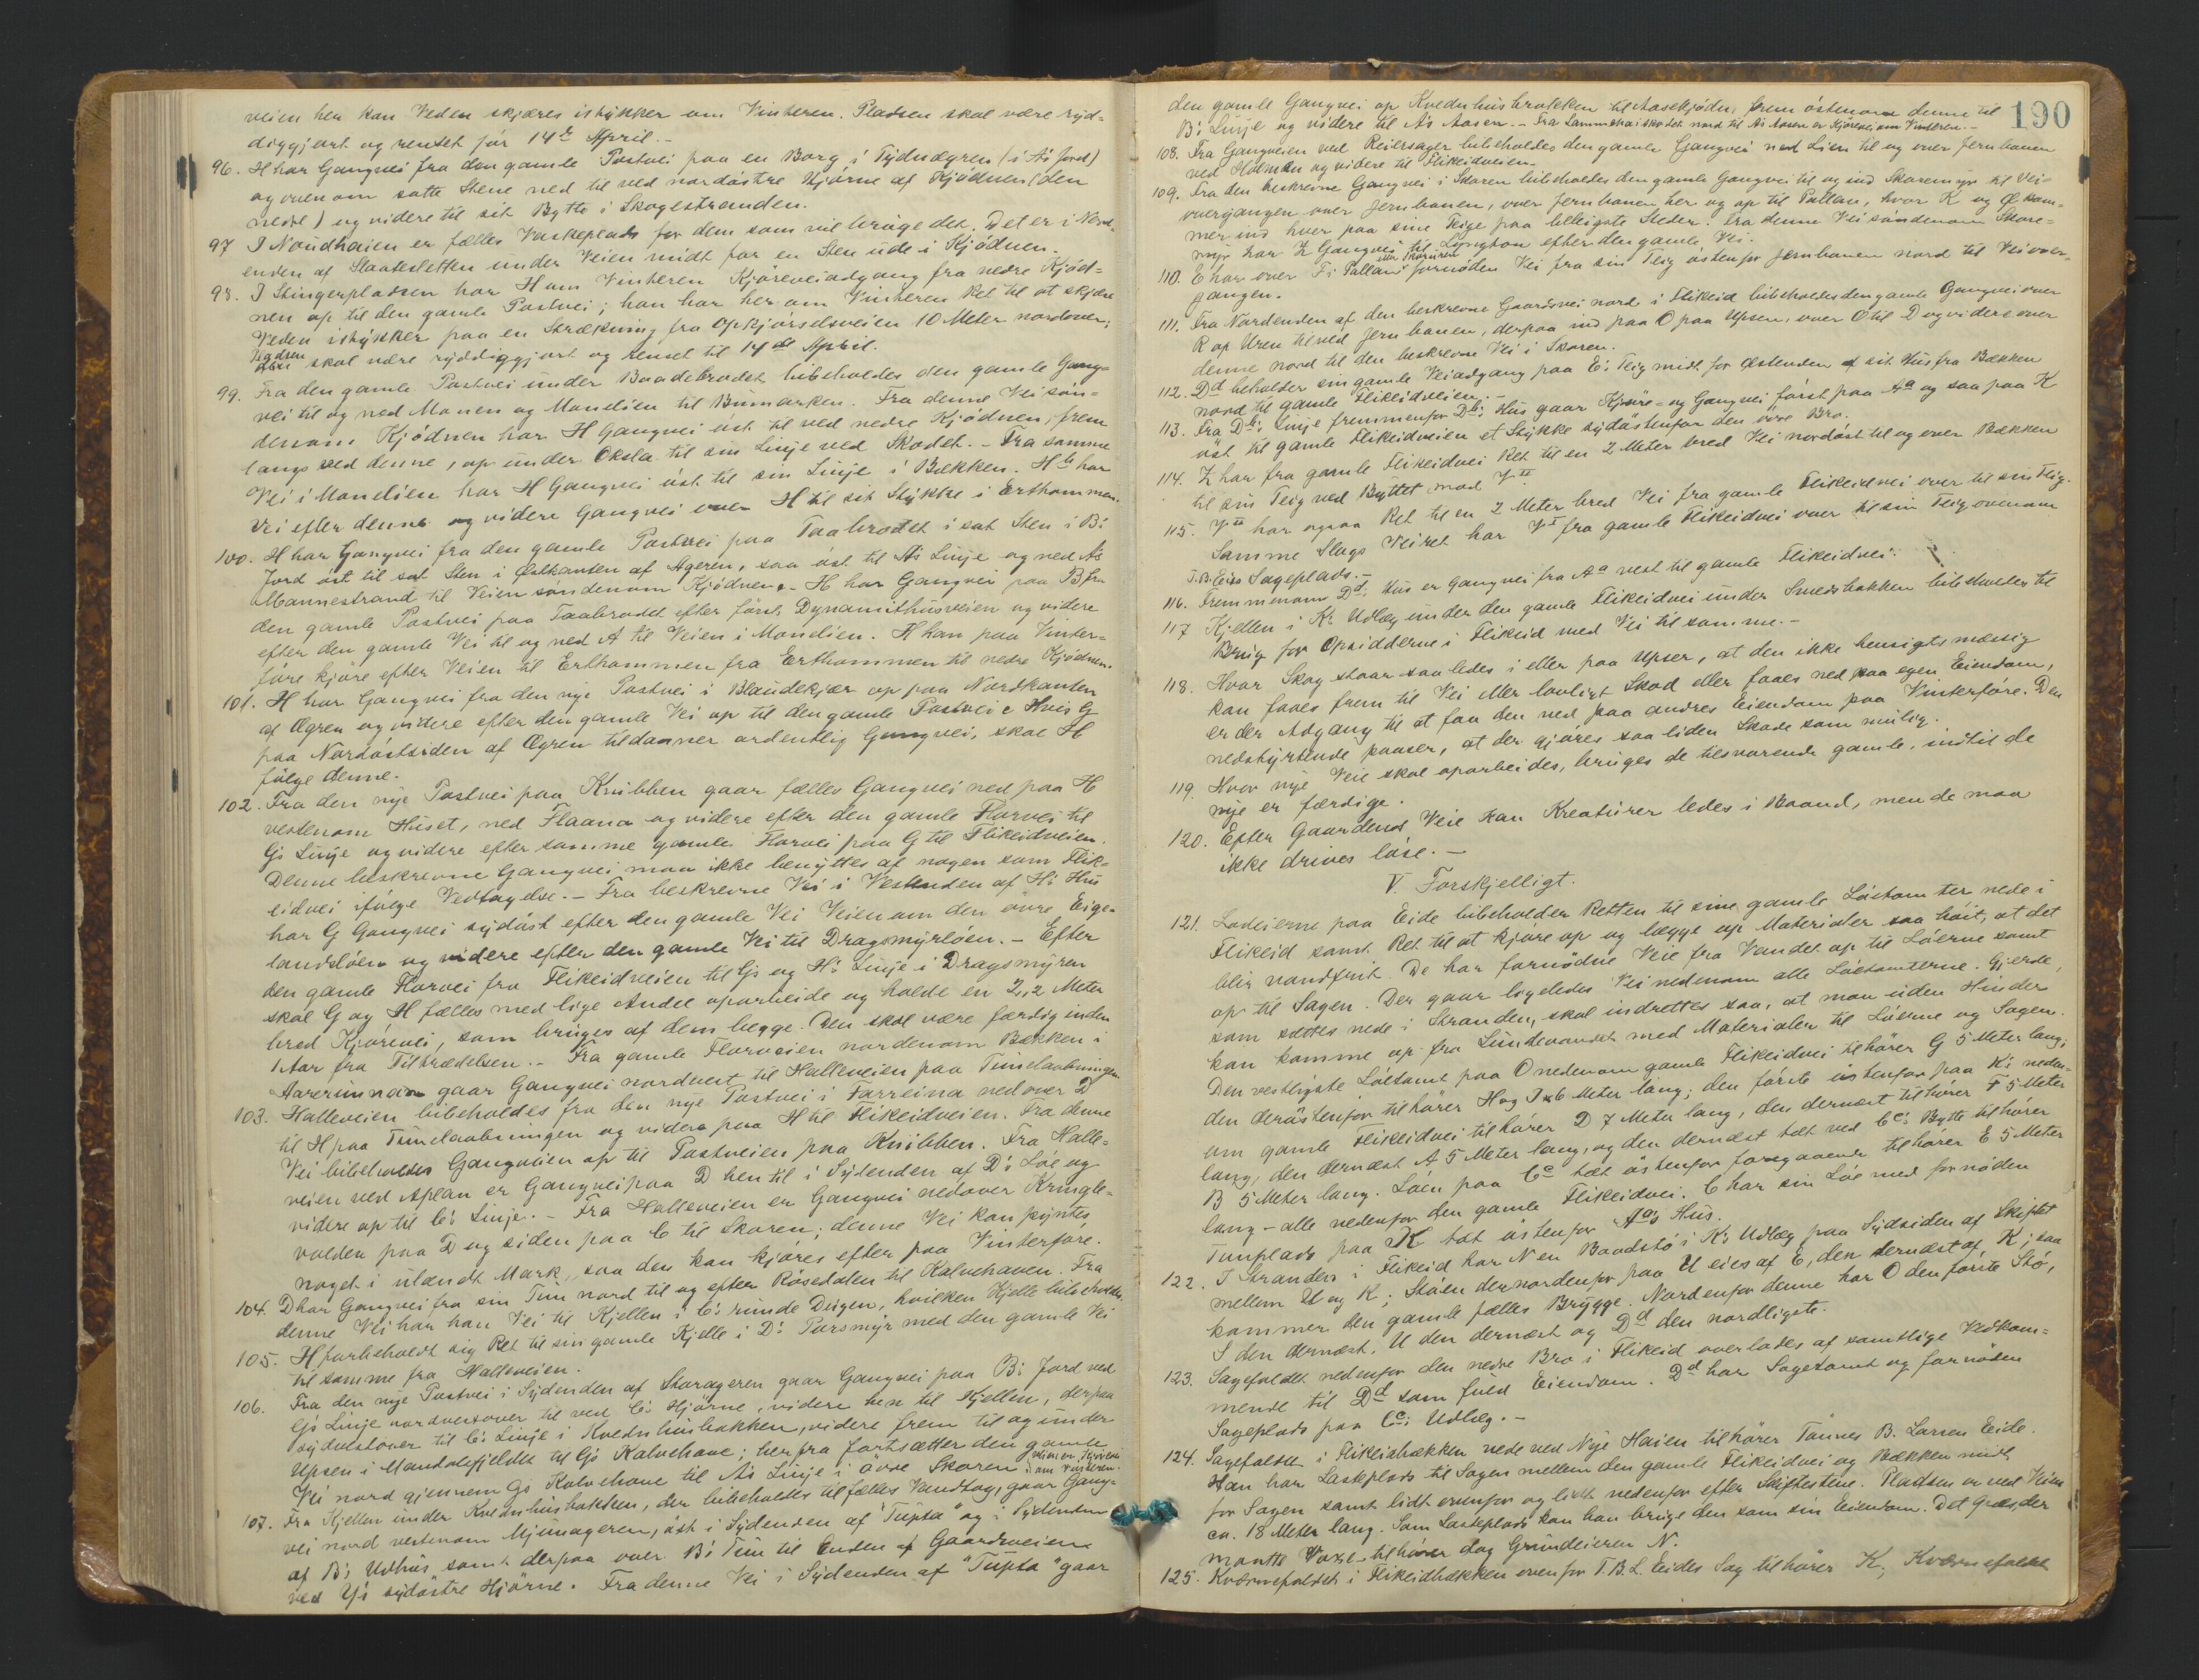 veien hen kan Veden skjæres istykker om Vinteren. Pladsen skal være ryd-
diggjort og renset før 14de April.-
96. H har Gangvei fra den gamle Postvei paa en Borg i Tydnægren (i A's Jord)
og ovenom satte Stene ned til ved nordøstre Hjørne af Kjødnen (den
nedre) og videre til sit Bytte i Skogestranden.
97 I Noudhaien er fælles Vaskeplads for dem som vil bruge det. Det er i Nord-
enden af Slaatesletten under Veien midt for en Sten ude i Kjødnen.
98. I Stingerpladsen har H om Vinteren Kjøreveiadgang fra nedre Kjød-
nen op til den gamle Postvei; han har her om Vinteren Ret til at skjære
Veden istykker paa en Strækning fra Opkjørselsveien 10 Meter nordover;
Pladsen skal være ryddiggjort og renset til 14de April.
99. Fra den gamle Postvei under Baadebrodet bibeholdes den gamle Gang-
vei til og ned Monen og Monelien til Bumarken. Fra denne Vei søn-
denom Kjødnen har H Gangvei øst til ved nedre Kjødnen, frem
langs ved denne, op under Oksla til sin Linje ved Skodet.- Fra samme
Vei i Monelien har H Gangvei øst til sin Linje i Bækken. Hb har
Vei efter denne og videre Gangvei over H til sit Stykke i Erthommen.
100. H har Gangvei fra den gamle Postvei paa Taabrodet i sat Sten i B's
Jord øst til sat Sten i Østkanten af Ageren, saa øst til A's Linje og ned A's
Mannestrand til Veien søndenom Kjødnen.- H har Gangvei paa B fra
den gamle Postvei paa Taabrodet efter først Dynamithusveien og videre
efter den gamle Vei til og ned A til Veien i Monelien. H kan paa Vinter-
føre kjøre efter Veien til Erthommen fra Erthommen til nedre Kjødnen.
101. H har Gangvei fra den nye Postvei i Blaudekjær op paa Nordkanten
af Ægren og videre efter den gamle Vei op til den gamle Postvei. Hvis G
paa Nordøstsiden af Ægren tildanner ordentlig Gangvei, skal H
følge denne.
102. Fra den nye Postvei paa Knibben gaar fælles Gangvei ned paa H
vestenom Huset, ned Flaana og videre efter den gamle Florvei til
G's Linje og videre efter samme gamle Florvei paa G til Flikeidveien.
Denne beskrevne Gangvei maa ikke benyttes af nogen som Flik-
eidvei ifølge Vedtagelse.- Fra beskrevne Vei i Vestenden af H's Hus
har G Gangvei sydøst efter den gamle Vei Veien om den øvre Eige-
landsløen og videre efter den gamle Vei til Dragsmyrløen.- Efter
den gamle Florvei fra Flikeidveien til G's og H's Linje i Dragsmyren
skal G og H fælles med lige Andel oparbeide og holde en 2,2 Meter
bred Kjørevei, som bruges af dem begge. Den skal være færdig inden
1 Aar fra Tiltrædelsen.- Fra gamle Florveien nordenom Bækken i
Aarerinnaen gaar Gangvei nordvest til Halleveien paa Tunelaabningen.
103. Halleveien bibeholdes fra den nye Postvei i Farreina ned over D
til H paa Tunelaabningen og videre paa H til Flikeidveien. Fra denne
Vei bibeholdes Gangveien op til Postveien paa Knibben. Fra Halle-
veien ved Aplan er Gangvei paa D hen til i Sydenden af D's Løe og
videre op til C's Linje.- Fra Halleveien er Gangvei nedover Kringle-
volden paa D og siden paa C til Skoren; denne Vei kan pyntes
noget i ulændt Mark, saa den kan kjøres efter paa Vinterføre.
104. D har Gangvei fra sin Tun nord til og efter Rosedalen til Kalvehaven. Fra
denne Vei har han Vei til Kjellen i C's runde Deigen, hvilken Kjelle bibeholdes
105. H forbeholdt sig Ret til sin gamle Kjelle i D's Porsmyr med den gamle Vei
til samme fra Halleveien.
106. Fra den nye Postvei i Sydenden af Storageren gaar Gangvei paa B's Jord ved
G's Linje nordvestover til ved C's Hjørne, videre hen til Kjellen, derpaa
sydvestover til C's Linje i Kvednhusbakken, videre frem til og under
Upsen i Mandalefjeldet til G's Kalvehave; herfra fortsætter den gamle
Vei nord gjennem G's Kalvehave til A's Linje i øvre Skoren; om Vinteren.
107. Fra Kjellen under Kvednhusbakken, der bibeholdes til fælles Vandtag, gaar Gang-
vei nord vestenom Mjunageren, øst i Sydenden af "Tupta" og i Sydenden
af B's Udhus samt derpaa over B's Tun til Enden af Gaardsveien
ved Y's sydøstre Hjørne. Fra denne Vei i Sydenden af "Tupta" gaar
190
den gamle Gangvei op Kvednhusbrotkken til Aasekjødn, frem østenom denne til
B's Linje og videre til A's Aasen.- Fra Sammehaiskodet nord til A's Aasen er Kjørevei om Vinteren.-
108. Fra Gangveien ved Reiersager bibeholdes den gamle Gangvei ned Lien til og over Jernbanen
ved Holmen og videre til Flikeidveien.
109. Fra den beskrevne Gangvei i Skoren bibeholdes den gamle Gangvei til og ind Skoremyr til Vei-
overgangen over Jernbanen, over Jernbanen her og op til Pallan, hvor K og Æ kom-
mer ind hver paa sine Teige paa beleiligste Steder. Fra denne Vei søndenom Skore-
myr har Z Gangvei til Lyngton efter den gamle Vei.
110. E har over F's Pallan fornøden Vei fra sin Teig østenfor Jernbanen nord til Veiover-
gangen.
111. Fra Nordenden af den beskrevne Gaardsvei nord i Flikeid bibeholdes den gamle Gangvei over
R op Uren til ved Jernbanen, derpaa ind paa O paa Upsen, over O til D og videre over
denne nord til den beskrevne Vei i Skoren.
112. Dd beholder sin gamle Veiadgang paa E's Teig midt for Østenden af sit Hus fra Bækken
nord til gamle Flikeidveien.-
113. Fra Db's Linje fremmenfor Db's Hus gaar Kjøre- og Gangvei først paa Aa og saa paa K
øst til gamle Flikeidveien et Stykke sydøstenfor den øvre Bro.
114. Z har fra gamle Flikeidvei Ret til en 2 Meter bred Vei nordøst til og over Bækken
til sin Teig ved Byttet mod V II
115. V II har ogsaa Ret til en 2 Meter bred Vei fra gamle Flikeidvei over til sin Teig.
Samme Slags Veiret har V I fra gamle Flikeidvei over til sin Teig ovenom
T.B. Eies Sageplads.-
116. Fremmenom Dd's Hus er Gangvei fra Aa vest til gamle Flikeidvei.
117 Kjellen i K's Udlæg under den gamle Flikeidvei under Smedsbakken bibeholdes til
Brug for Opsidderne i Flikeid med Vei til samme.-
118. Hvor Skog staar saaledes i eller paa Upser, at den ikke hensigtsmæssig
kan faaes frem til Vei eller lovligt Skod eller faaes ned paa egen Eiendom,
er der Adgang til at faa den ned paa andres Eiendom paa Vinterføre. Den
nedstyrtende paaser, at der gjøres saa liden Skade som mulig.
119. Hvor nye Veie skal oparbeides, bruges de tilsvarende gamle, indtil de
nye er færdige.
120. Efter Gaardens Veie kan Kreaturer ledes i Baand, men de maa
ikke drives løse.-
V. Forskjelligt.
121. Lodeierne paa Eide bibeholder Retten til sine gamle Løetomter nede i
Flikeid samt Ret til at kjøre op og lægge op Materialer saa høit, at det
blir vandfrit. De har fornødne Veie fra Vandet op til Løerne samt
op til Sagen. Der gaar ligeledes Vei nedenom alle Løetomterne. Gjerde,
som sættes nede i Stranden, skal indrettes saa, at man uden Hinder
kan komme op fra Lundevandet med Materialer til Løerne og Sagen.
Den vestligste Løetomt paa O nedenom gamle Flikeidvei tilhører G 5 Meter lang;
den derøstenfor tilhører H og J 6 Meter lang; den første østenfor paa K's neden-
om gamle Flikeidvei tilhører D 7 Meter lang, den dernæst tilhører F 5 Meter
lang, den dernæst A 5 Meter lang, og den dernæst tæt ved Cc's Bytte tilhører
B 5 Meter lang. Løen paa Cc tæt østenfor foregaaende tilhører E 5 Meter
lang - alle nedenfor den gamle Flikeidvei. C har sin Løe med fornøden
Tunplads paa K tæt østenfor Aa's Hus.
122. I Stranden i Flikeid har N en Baadstø i K's Udlæg paa Sydsiden af Skiftet
mellem U og K; Støen der nordenfor paa U eies af E, den dernæst af K; saa
kommer den gamle fælles Brygge. Nordenfor denne har O den første Stø,
I den dernæst, U den dernæst og Dd den nordligste.
123. Sagefaldet nedenfor den nedre Bro i Flikeid overlades af samtlige Vedkom-
mende til Dd som fuld Eiendom. Dd har Sagetomt og fornøden
Sageplads paa Cc's Udlæg.-
124. Sagefaldet i Flikeidbækken nede ved Nye Haien tilhører Tønnes B. Larsen Eide.
Han har Lasteplads til Sagen mellem den gamle Flikeidvei og Bækken midt
for Sagen samt lidt ovenfor og lidt nedenfor efter Skiftestene. Pladsen er ved Veien
ca. 18 Meter lang. Som Lasteplads kan han bruge den som sin Eiendom. Det Græs, der
maatte Voxe, tilhører dog Grundeieren N.
125. Kvernefaldet i Flikeidbækken ovenfor T.B.L. Eides Sag tilhører K, Kvernefaldet